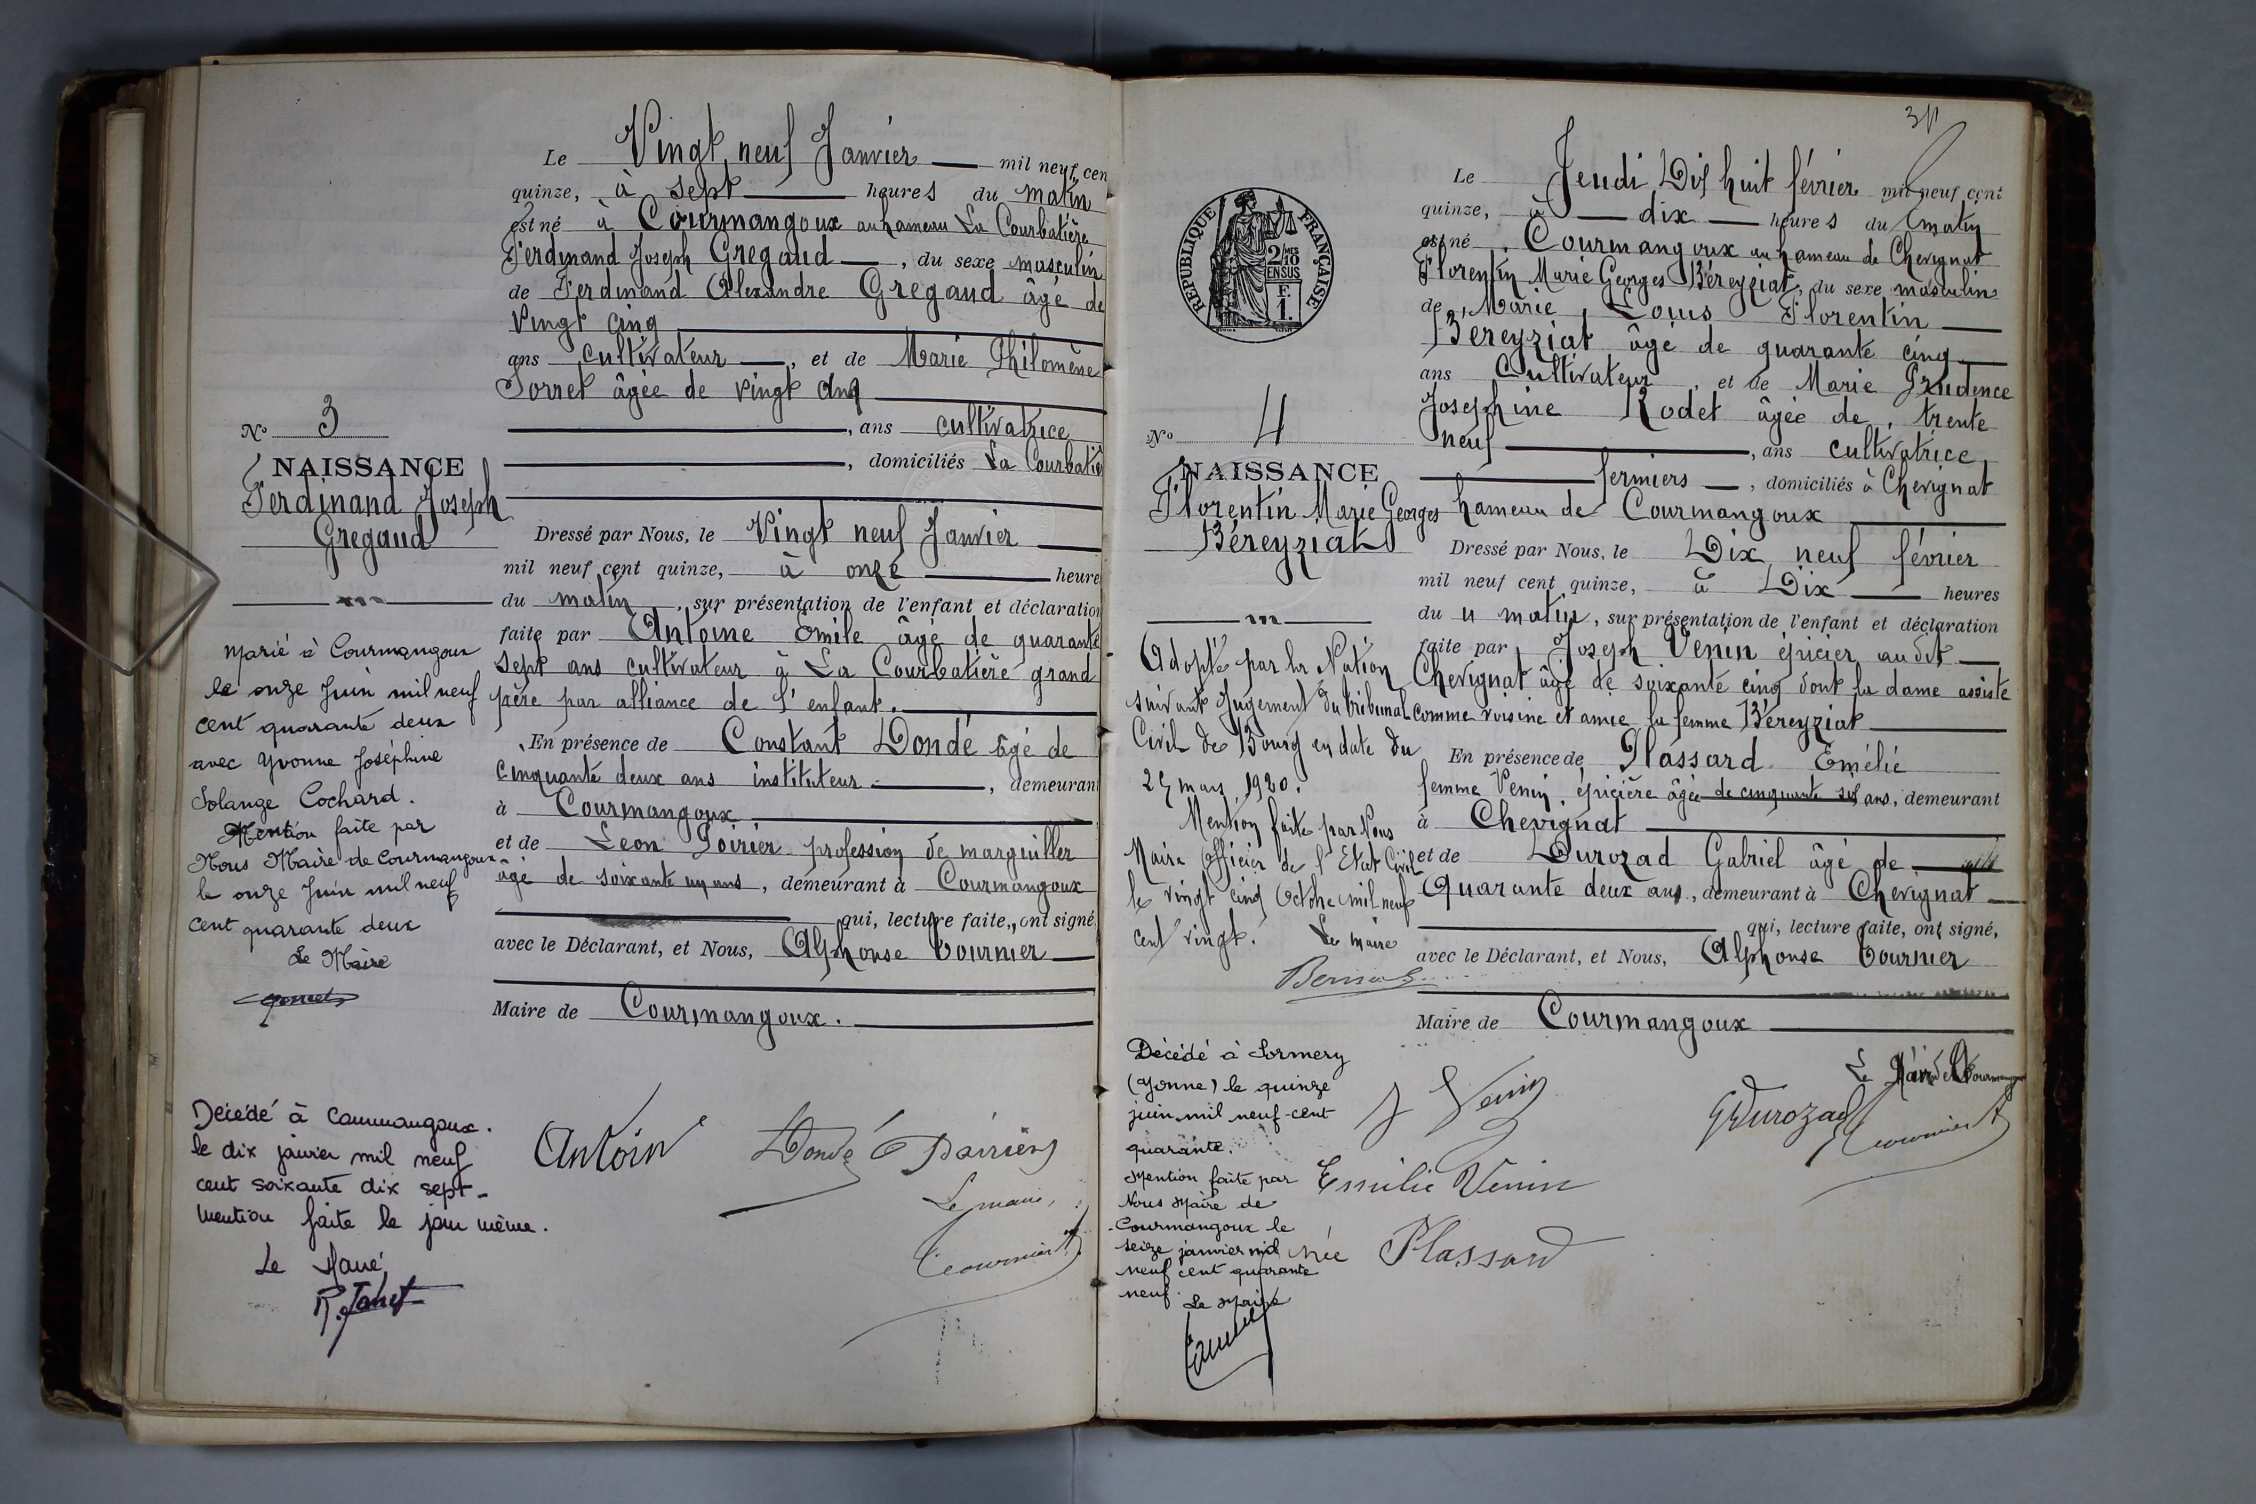 Le Vingt neuf Janvier mil neuf cen
quinze, à sept heures du matin
est né à Courmangoux au hameau La Courbatière
Ferdinand Joseph Gregaud, du sexe masculin
de Ferdinand Alexandre Gregaud âgé de
Vingt cinq
ans cultivateur, et de Marie Philomène
Sorret âgée de vingt cinq
, ans cultivatrice
, domiciliés La Courbatiè
No 3
NAISSANCE
Ferdinand Joseph
Gregaud
Dressé par Nous, le Vingt neuf Janvier
mil neuf cent quinze, à onze heure
du matin, sur présentation de l'enfant et déclaration
faite par Antoine Emile âgé de quarante
sept ans cultivateur à La Courbatière grand
père par alliance de l'enfant.
En présence de Constant Dondé âgé de
cinquante deux ans instituteur, demeurant
à Courmangoux
et de Léon Poirier profession de marguiller
âgé de soixante un ans, demeurant à Courmangoux
qui, lecture faite, ont signé,
avec le Déclarant, et Nous, Alphonse Tournier
Maire de Courmangoux.
marié à Courmangoux
le onze Juin mil neuf
cent quarante deux
avec Yvonne Joséphine
Solange Cochard.
Mention faite par
Nous Maire de Courmangoux
le onze Juin mil neuf
cent quarante deux
Le Maire
Décédé à Courmangoux.
le dix janvier mil neuf
cent soixante dix sept-
mention faite le jour même.
Le Maire
Antoin
Dondé
Le maire,
Tournier
Le Jeudi Dix huit février mil neuf cent
quinze, à dix heures du matin
est né Courmangoux au hameau de Chevignat
Florentin Marie Georges Béreyziat, du sexe masculin
de Marie Louis Florentin
Béreyziat âgé de quarante cinq
ans Cultivateur, et de Marie Prudence
Josephine Rodet âgée de trente
neuf, ans cultivatrice
fermiers, domiciliés à Chevignat
hameau de Courmangoux
RÉPUBLIQUE FRANÇAISE
2/10
EN SUS
F.
1.
No 4
NAISSANCE
Florentin Marie Georges
Béreyziat
Dressé par Nous, le Dix neuf février
mil neuf cent quinze, à Dix heures
du matin, sur présentation de l'enfant et déclaration
faite par Joseph Venin épicier au dit
Chevignat âgé de soixante cinq dont la dame assiste
comme voisine et amie la femme Béreyziat
En présence de Plassard Emélie
femme Venin, épicière âgée de cinquante six ans, demeurant
à Chevignat
et de Durozad Gabriel âgé de
Quarante deux ans, demeurant à Chevignat
qui, lecture faite, ont signé,
avec le Déclarant, et Nous, Alphonse Tournier
Maire de Courmangoux
Adopté par la Nation
suivant Jugement du tribunal
Civil de Bourg en date du
mars 1920.
Mention faite par Nous
Maire Officier de l'Etat Civil
le vingt cinq Octobre mil neuf
cent vingt. Le maire
Décédé à Sormery
(Yonne) le quinze
juin mil neuf-cent
quarante.
Mention faite par
Nous Maire de
Courmangoux le
seize janvier mil
neuf cent quarante
neuf.
Le Maire
J Venin
G Durozad
Tournier
Emilie Venin
née Plassard